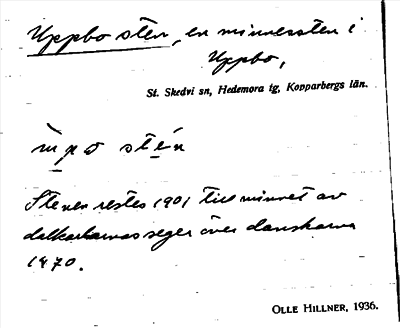 Uppbo sten, en minnessten i
Uppbo,
St. Skedvi sn, Hedemora tg, Kopparbergs län.
ùpo stén
Stenen restes 1901 till minnet av
dalkarlarnas seger över danskarna
1470.
OLLE HILLNER, 1936.